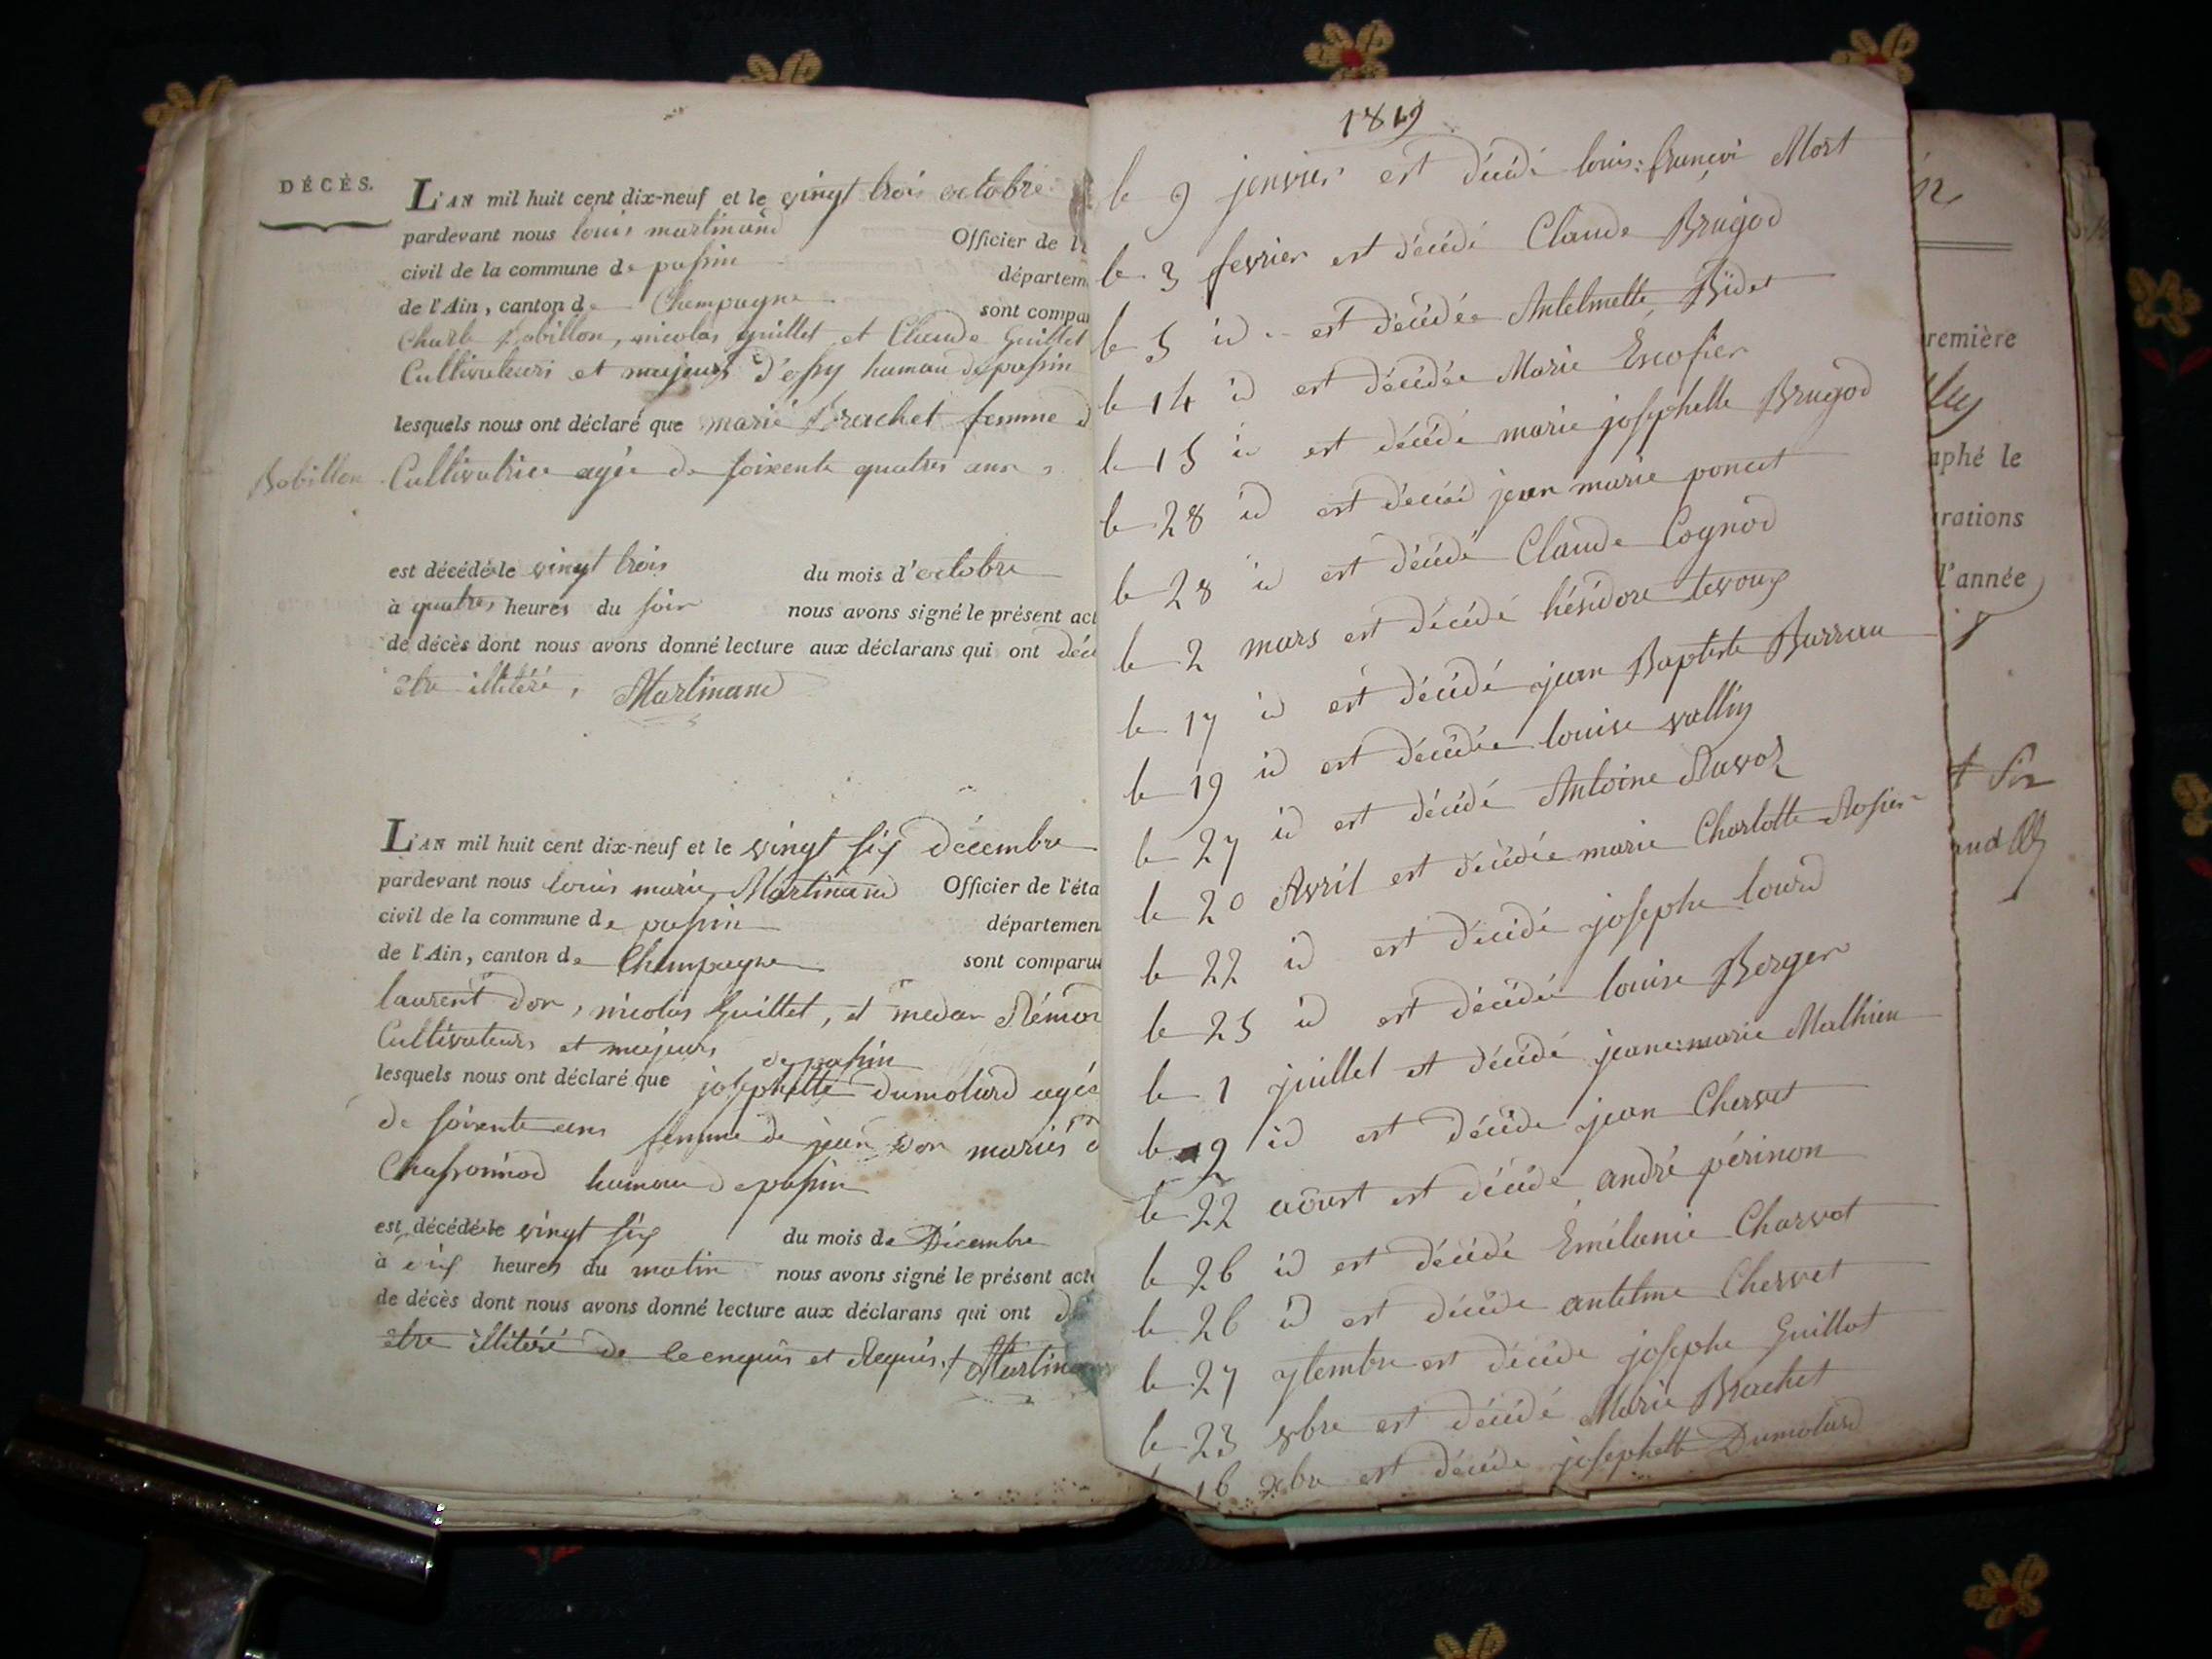 DÉCÈS.
L'AN mil huit cent dix-neuf et le vingt trois octobre
pardevant nous louis martinand Officier de l'é
civil de la commune de passin départem
de l'Ain, canton de Champagne sont compar
Charle Bobillon, nicolas guillet et Claude Guillet
Cultivateurs et majeurs d'ossy hamau de passin
lesquels nous ont déclaré que marie Brachet femme d
Bobillon Cultivatrice agée de soixente quatres ans
est décédé le vingt trois du mois d'octobre
à quatres heures du soir nous avons signé le présent act
de décès dont nous avons donné lecture aux déclarans qui ont déc
etre illitéré, Martinand
L'AN mil huit cent dix-neuf et le vingt six décembre
pardevant nous louis marie Martinand Officier de l'éta
civil de la commune de passin départemen
de l'Ain, canton de Champagne sont comparu
laurent dor, nicolas Guillet, et medar Rémon
Cultivateurs et majeurs de passin
lesquels nous ont déclaré que josephette dumolard agée
de soixente ans femme de jean dor mariés d
Chassonnod hamau de passin
est décédé le vingt six du mois de Décembre
à six heures du matin nous avons signé le présent act
de décès dont nous avons donné lecture aux déclarans qui ont d
etre illitéré de ce enquis et Requis. Martin
1819
le 9 jenvier est décédé louis françoi Mort
le 3 fevrier est décédé Claude Brugod
le 5 id est décédée Antelmette Bidet
le 14 id est décédée Marie Escofier
le 15 id est décédé marie josephette Brugod
le 28 id est décédé jean marie poncet
le 28 id est décédé Claude Cognod
le 2 mars est décédé hésidore tevoux
le 17 id est décédé jean Baptiste Burreau
le 19 id est décédée louise vallin
le 27 id est décédé Antoine Ravoz
le 20 Avril est décédée marie Charlotte Rosier
le 22 id est décédé josephe lourd
le 25 id est décédée louise Berger
le 1 juillet est décédé jeane marie Mathieu
le 9 id est décédé jean Chervet
le 22 aoust est décédé andré périnon
le 26 id est décédé Émélanie Charvet
le 26 id est décédé antelme Chervet
le 27 7tembre est décédé josephe Guillot
le 23 8bre est décédé Marie Brachet
16 xbre est décédé josephette Dumolard
remière
aphé le
rations
l'année